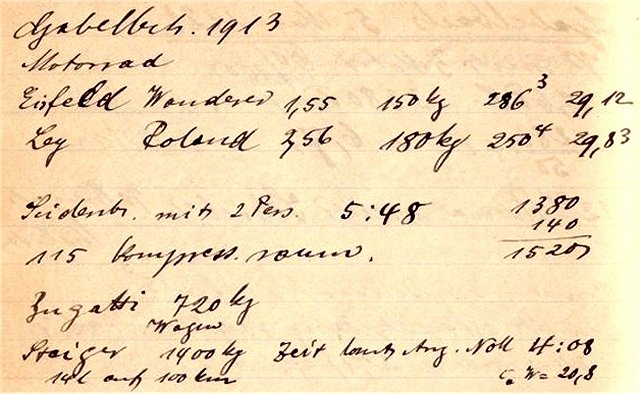 Gabelbch. 1913
Motorrad
Eisfeld Wanderer 1,55 150 kg 286³ 29,12
Ley Roland 2,56 180 kg 250⁴ 29,83
mit 2 Pers. 5:48 1380
140
115 Kompress. raum. 1520
Bugatti 720 kg
Wagen
Steiger 1400 kg Zeit laut Ang. Noll 4:08
14 l auf 100 km W = 20,8